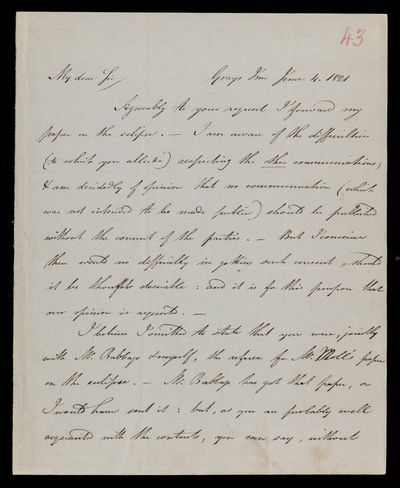 43
My dear Sir, Grays Inn June 4. 1821
Agreeably to your request I forward my
paper on the eclipse. — I am aware of the difficulties
(to which you allude) respecting the other communications,
& am decidedly of opinion that no communication (which
was not intended to be made public) should be published
without the consent of the parties. — But I conceive
there would be no difficulty in getting such consent, should
it be thought desirable: and it is for this purpose that
our opinion is requested. —
I believe I omitted to state that you were, jointly
with Mr. Babbage & myself, the referee for Mr. Moll's paper
on the eclipse. — Mr. Babbage has got that paper, or
I would have sent it: but, as you are probably well
acquainted with the contents, you can say, without